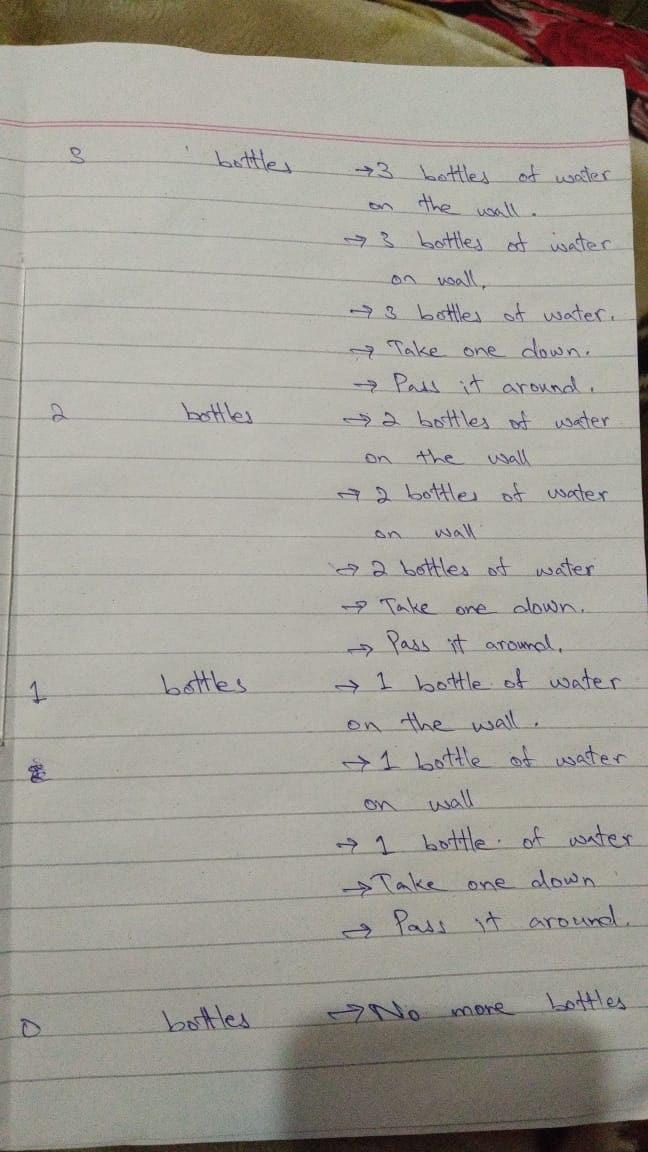 3 bottles → 3 bottles of water
on the wall.
→ 3 bottles of water
on wall.
→ 3 bottles of water.
→ Take one down.
→ Pass it around.
2 bottles → 2 bottles of water
on the wall
→ 2 bottles of water
on wall
→ 2 bottles of water
→ Take one down.
→ Pass it around.
1 bottles → 1 bottle of water
on the wall.
→ 1 bottle of water
on wall
→ 1 bottle of water
→ Take one down
→ Pass it around.
0 bottles → No more bottles